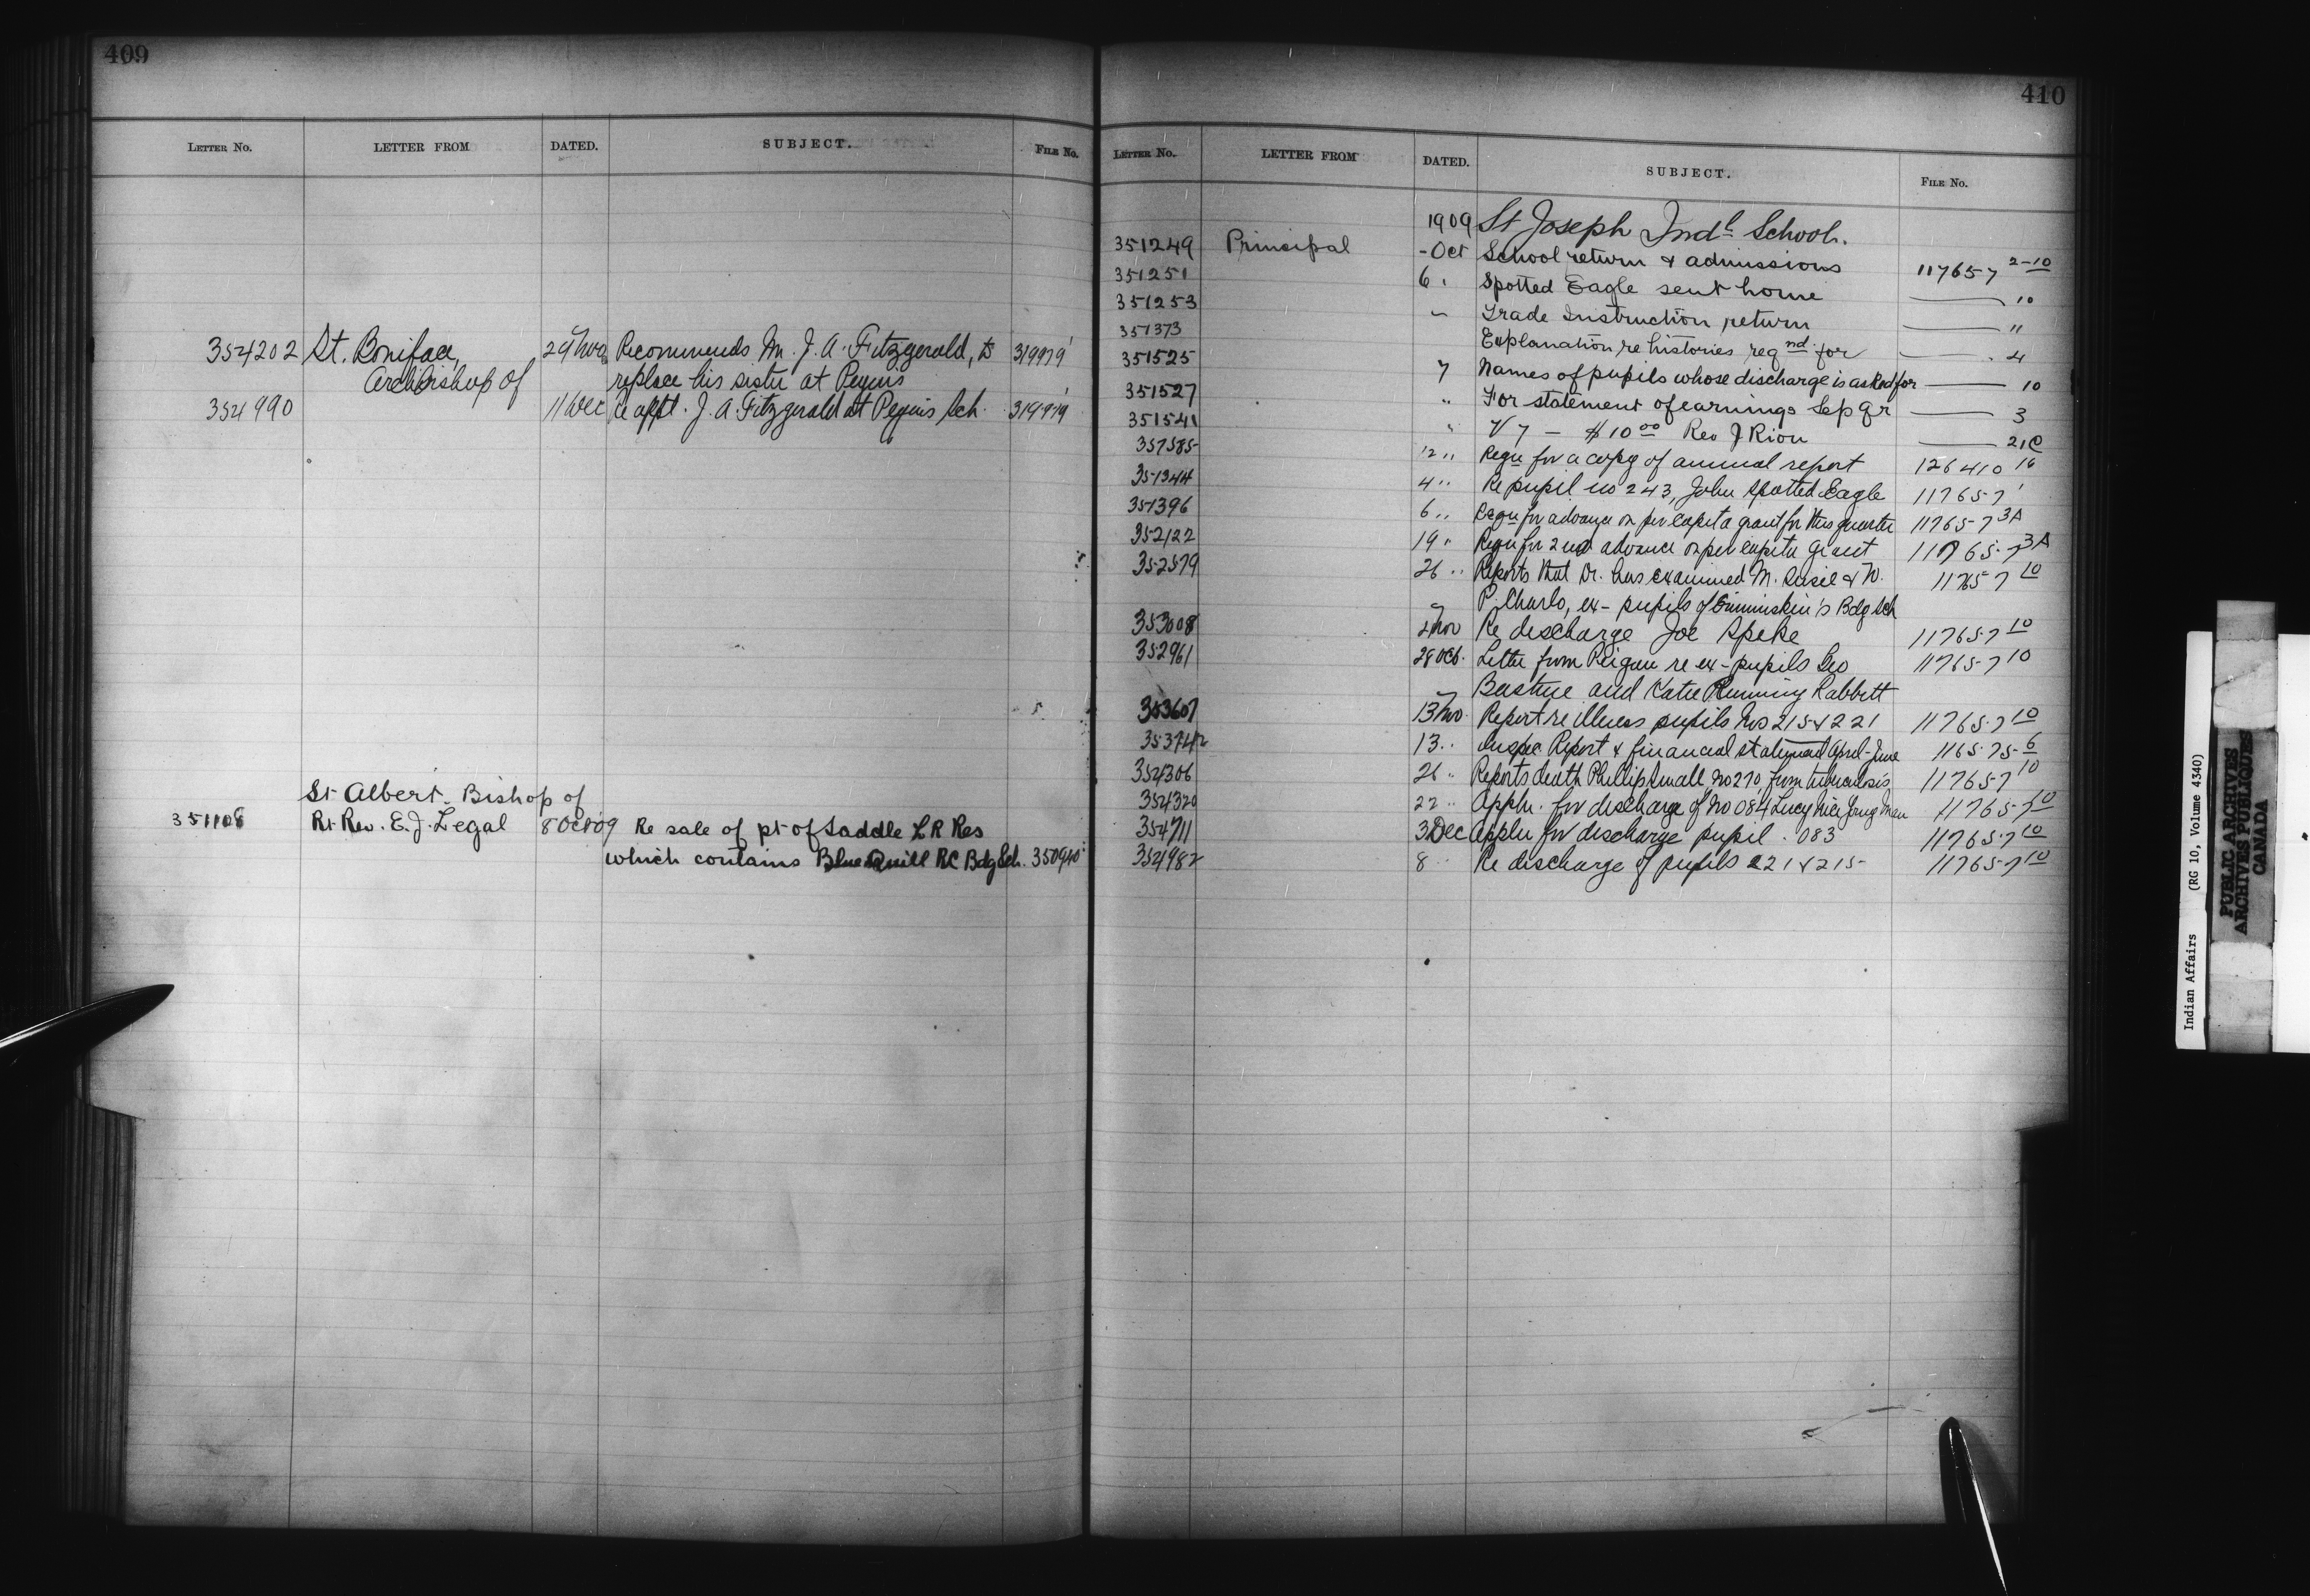 409
LETTER NO. LETTER FROM DATED. SUBJECT. FILE No.
354202 St. Boniface, 29 Nov Recommends Mr. J. A. Fitzgerald, to 319979 1
Archbishop of replace his sister at Peguis
354990 11 Dec Re appt. J. A Fitzgerald at Peguis Sch. 319979 1
St Albert. Bishop of
351108 Rt Rev. E. J. Legal 8 Oct 09 Re sale of pt of Saddle L R Res
which contains Blue Quill RC Bdg Sch. 350940
410
LETTER No. LETTER FROM DATED. SUBJECT. FILE No.
1909 St Joseph Indl School.
351249 Principal - Oct School return & admissions 117657 2-10
351251 6 " Spotted Eagle sent home — 10
351253 " Trade Instruction return — "
351373 Explanation re histories reqnd for — 4
351525 7 Names of pupils whose discharge is asked for — 10
351527 " For statement of earnings Sep Qr — 3
351541 " V 7 — $10 00 Rev J Riou — 21C
357585 12 " Requ for a copy of annual report 126410 16
351344 4 " Re pupil no 243, John Spotted Eagle 117657 1
351396 6 " Requ for advance on per capita grant for this quarter 117657 3A
352122 19 " Requ for 2nd advance on per capita grant 117657 3A
352579 26 " Reports that Dr. has examined M. & W. 117657 10
P. Charlo, ex-pupils of Erminskin's Bdg Sch
353008 2 Nov Re discharge Joe Speke 117657 10
352961 28 Oct. Letter from Peigan re ex-pupils Geo 117657 10
Bastine and Katie Running Rabbitt
353607 13 Nov Report re illness pupils Nos 215 & 221 117657 10
353742 13 " Inspec Report & financial statement April-June 116575-6
354306 26 " Reports death Phillip Small No 270, from tuberculosis 117657 10
354320 22 " Appln. for discharge of No 084 Lucy Nice Young Man 117657 10
354711 3 Dec Appln for discharge pupil. 083 117657 10
354982 8 " Re discharge of pupils 221 & 215 117657 10
Indian Affairs (RG 10, Volume 4340)
PUBLIC ARCHIVES
ARCHIVES PUBLIQUES
CANADA